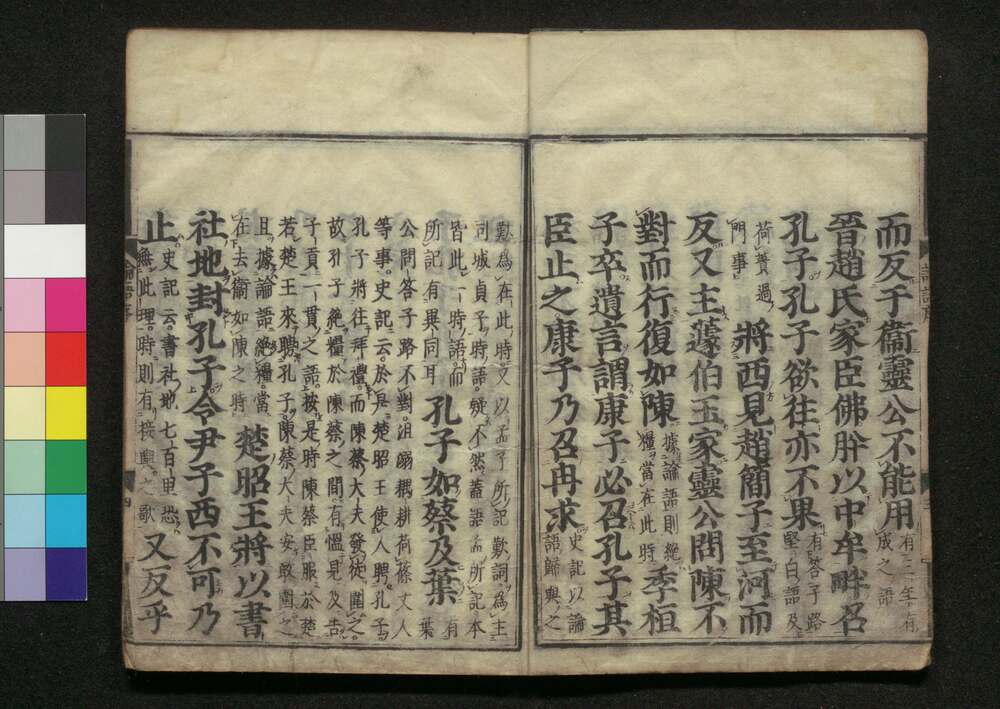 而反于衞靈公不能用有三年有成之語
晉趙氏家臣佛肸以中牟畔召
孔子孔子欲往亦不果有答子路堅白語及
荷蕢過門事將西見趙簡子至河而
反又主蘧伯玉家靈公問陳不
對而行復如陳據論語則絶糧當在此時季桓
子卒遺言謂康子必召孔子其
臣止之康子乃召冉求史記以論語歸與之
歎爲在此時又以孟子所記歎詞爲主
司城貞子時語疑不然蓋語孟所記本
皆此一時語而所記有異同耳孔子如蔡及葉有葉
公問答子路不對沮溺耦耕荷蓧丈人
等事史記云於是楚昭王使人聘孔子
孔子將往拜禮而陳蔡大夫發徒圍之
故孔子絶糧於陳蔡之間有慍見及告
子貢一貫之語按是時陳蔡臣服於楚
若楚王來聘孔子陳蔡大夫安敢圍之
且據論語絶糧當在去衞如陳之時楚昭王將以書
社地封孔子令尹子西不可乃
止史記云書社地七百里恐無此理時則有接輿之歌又反乎